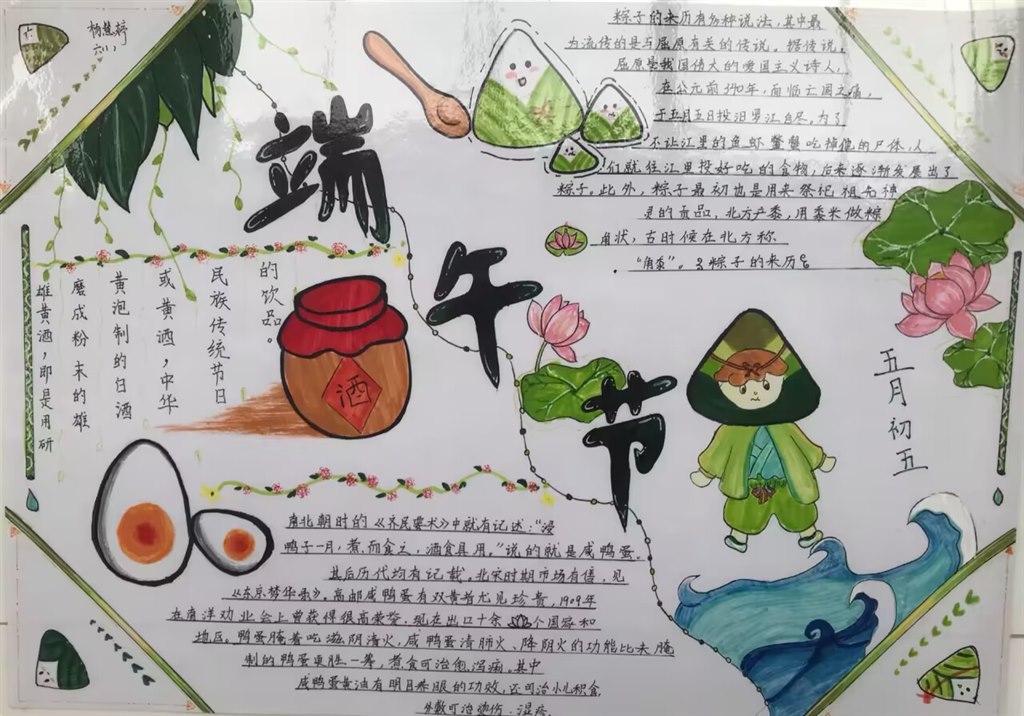 杨慧婷
六(1)
端午节
粽子的来历有多种说法,其中最
为流传的是与屈原有关的传说。据传说,
屈原是我国伟大的爱国主义诗人,
在公元前340年,面临亡国之痛,
于五月五日投汨罗江自尽,为了
不让江里的鱼虾蟹鳖吃掉他的尸体,人
们就往江里投好吃的食物,后来逐渐发展出了
粽子。此外,粽子最初也是用来祭祀祖先神
灵的贡品,北方产黍,用黍米做粽
角状,古时候在北方称
“角黍”。粽子的来历
雄黄酒,即是用研
磨成粉末的雄
黄泡制的白酒
或黄酒,中华
民族传统节日
的饮品。
酒
五月初五
南北朝时的《齐民要术》中就有记述:“浸
鸭子一月,煮而食之,酒食具用。”说的就是咸鸭蛋。
其后历代均有记载。北宋时期市场有售,见
《东京梦华录》。高邮咸鸭蛋有双黄者尤见珍贵,1909年
在南洋劝业会上曾获得很高荣誉。现在出口十余个国家和
地区。鸭蛋腌着吃滋阴清火,咸鸭蛋清肺火、降阴火的功能比未腌
制的鸭蛋更胜一筹,煮食可治愈泻痢。其中
咸鸭蛋黄油有明目养眼的功效,还可治小儿积食,
外敷可治烫伤、湿疹。